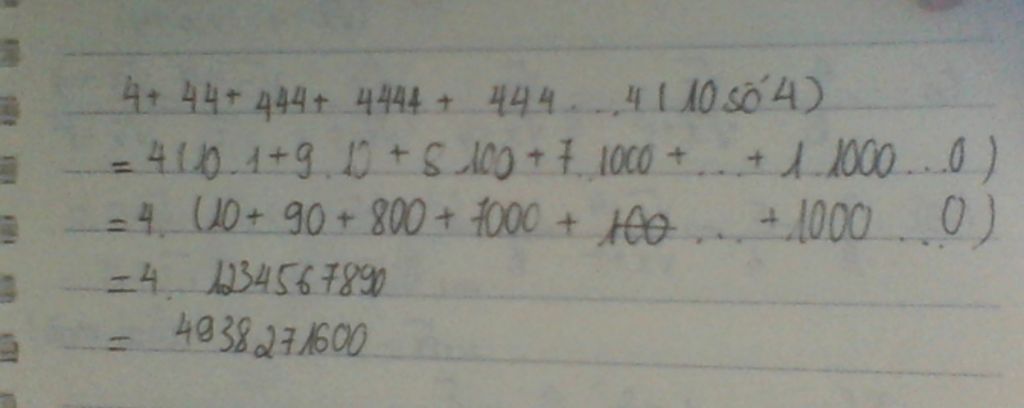 4+ 44+ 444+ 4444 + 444....4 (10 số 4)
= 4(10.1+9.10 + 8.100+7.1000+ ... + 1.1000...0)
= 4. (10+ 90+800+7000 + ... +1000...0)
= 4. 1234567890
= 4938271600